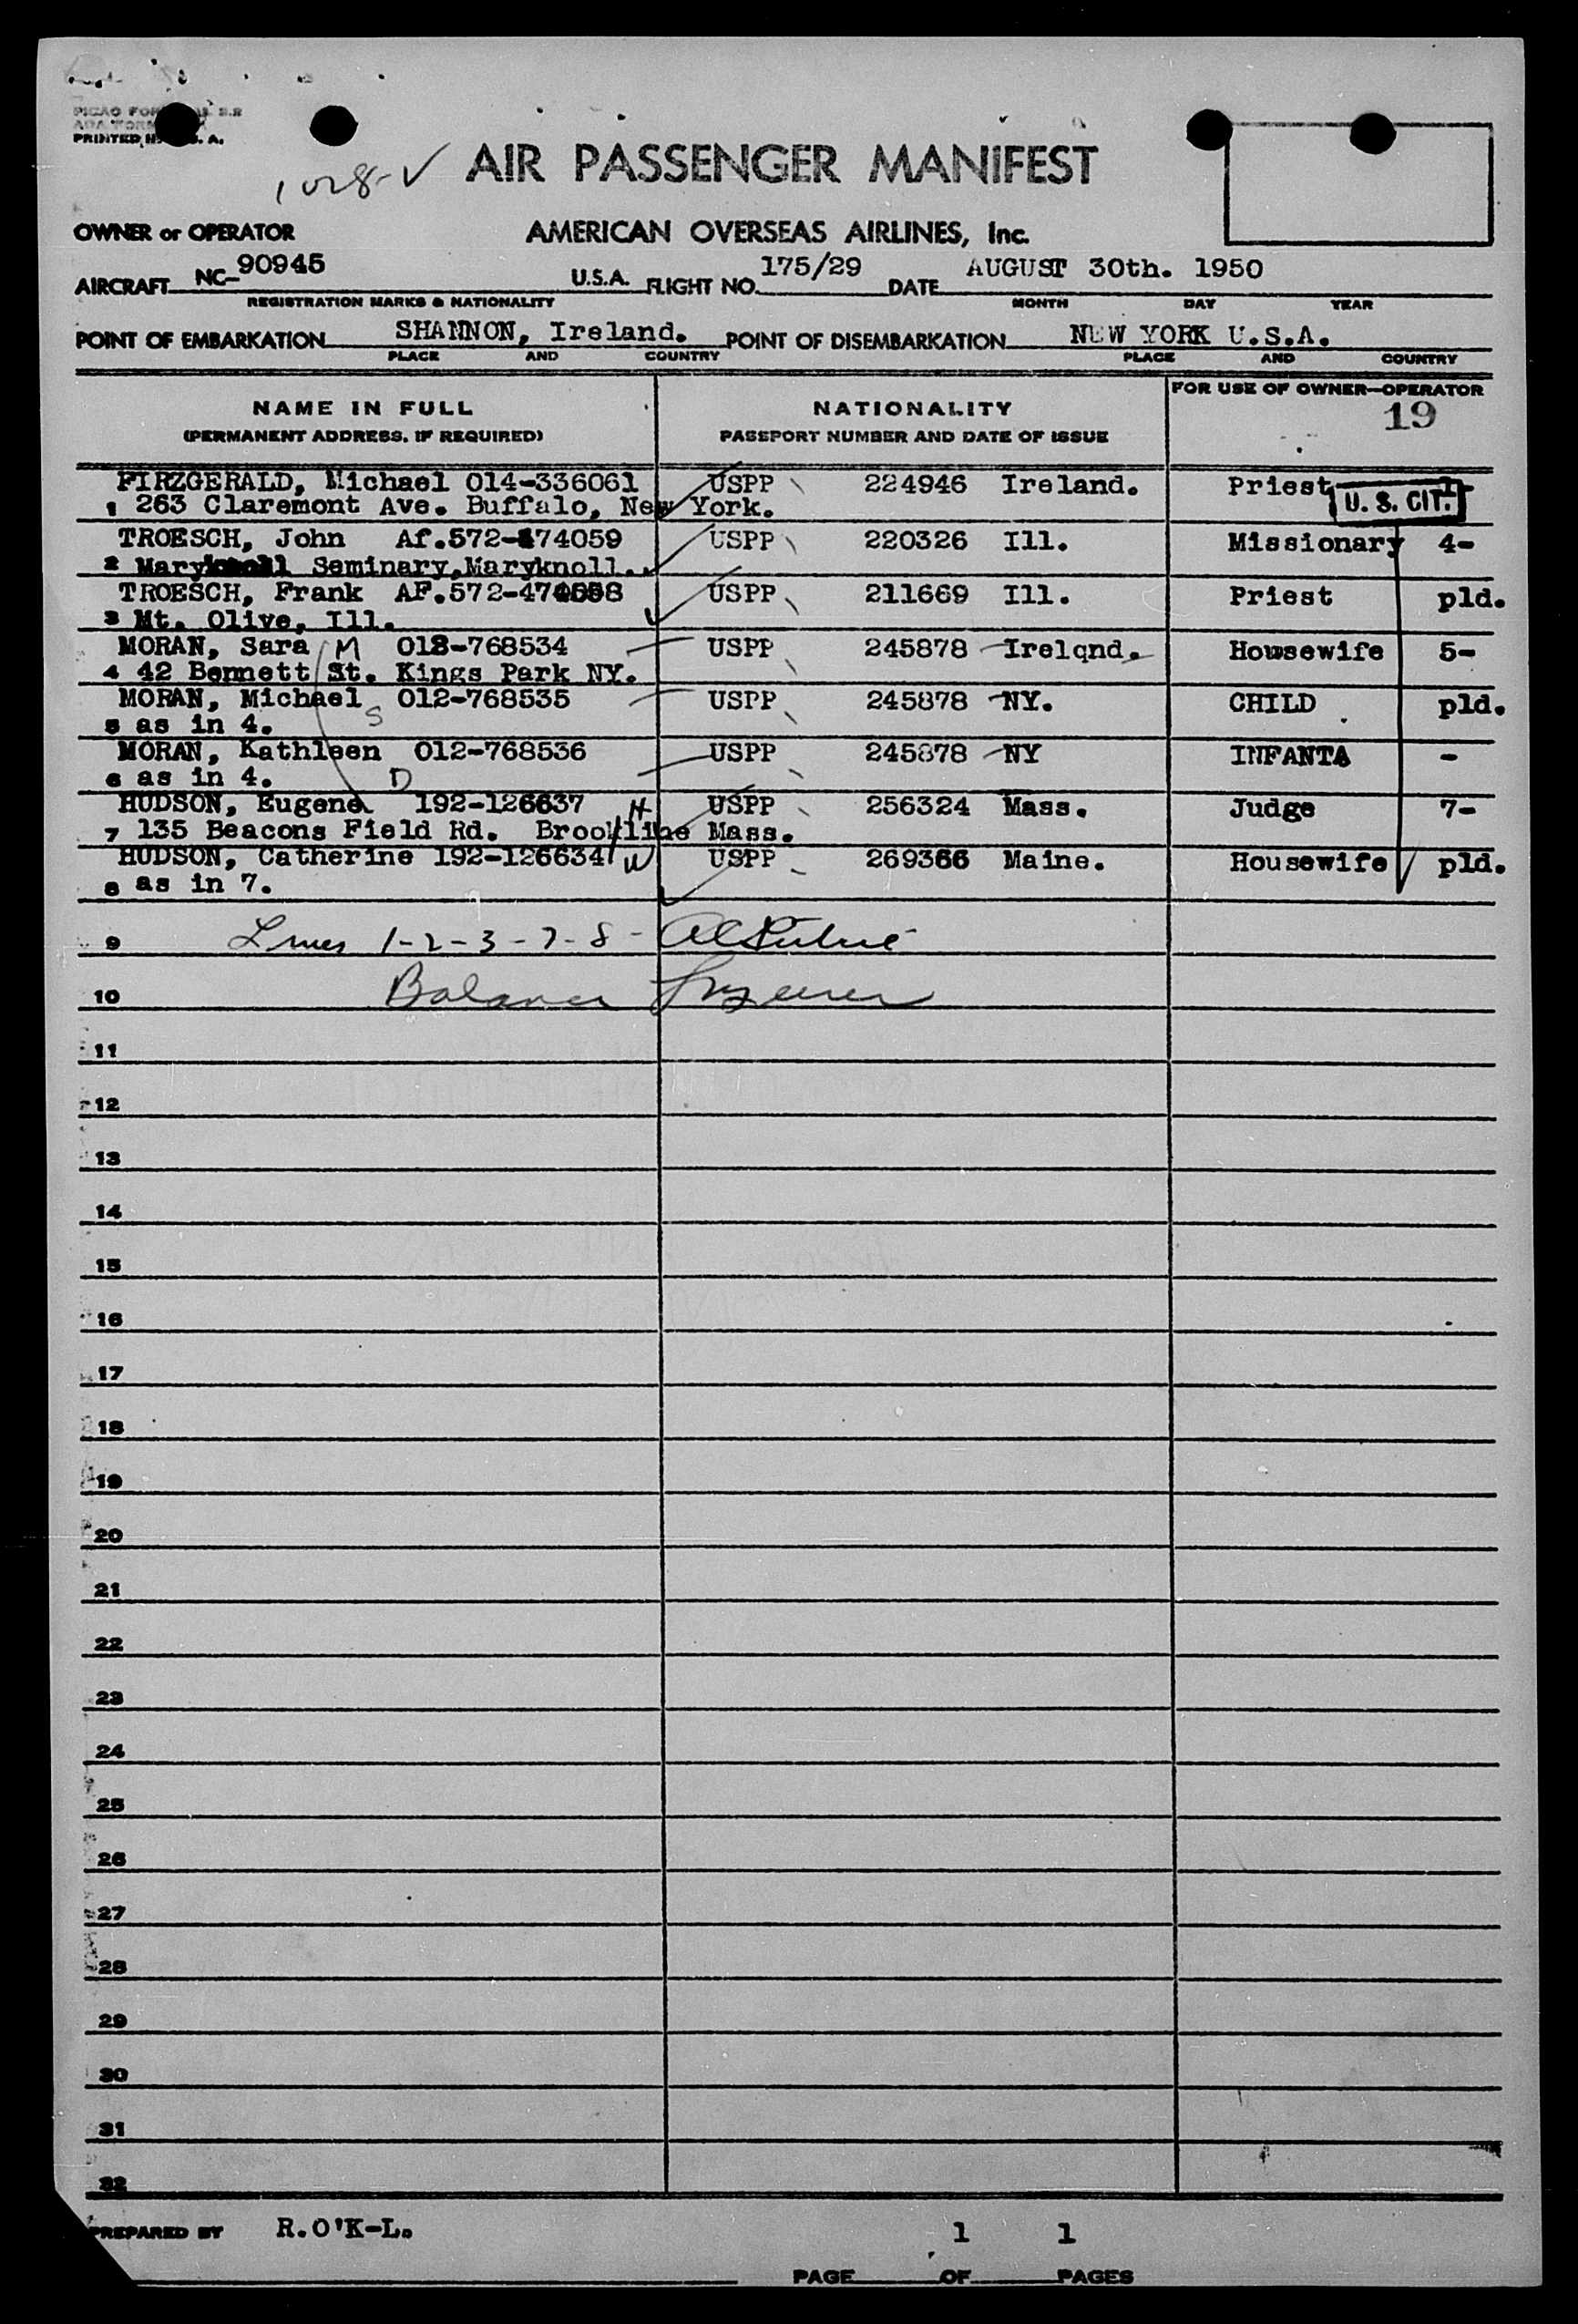 PRINTED
1028-✓ AIR PASSENGER MANIFEST
OWNER or OPERATOR AMERICAN OVERSEAS AIRLINES, Inc.
AIRCRAFT NC-90945 U.S.A. FLIGHT NO. 175/29 DATE AUGUST 30th. 1950
REGISTRATION MARKS & NATIONALITY MONTH DAY YEAR
POINT OF EMBARKATION SHANNON, Ireland. POINT OF DISEMBARKATION NEW YORK U.S.A.
PLACE AND COUNTRY PLACE AND COUNTRY
NAME IN FULL NATIONALITY FOR USE OF OWNER—OPERATOR
(PERMANENT ADDRESS, IF REQUIRED) PASSPORT NUMBER AND DATE OF ISSUE 19
FIRZGERALD, Michael 014-336061 USPP 224946 Ireland. Priest
1 263 Claremont Ave. Buffalo, New York. U. S. CIT.
TROESCH, John Af.572-474059 USPP 220326 Ill. Missionary 4-
2 Maryknoll Seminary,Maryknoll.
TROESCH, Frank AF.572-474058 USPP 211669 Ill. Priest pld.
3 Mt. Olive, Ill.
MORAN, Sara M 012-768534 USPP 245878 Irelqnd. Housewife 5-
4 42 Bennett St. Kings Park NY.
MORAN, Michael 012-768535 USPP 245878 NY. CHILD pld.
5 as in 4. S
MORAN, Kathleen 012-768536 USPP 245878 NY INFANTA -
6 as in 4. D
HUDSON, Eugene 192-126637 H USPP 256324 Mass. Judge 7-
7 135 Beacons Field Rd. Brookline Mass.
HUDSON, Catherine 192-126634 W USPP 269366 Maine. Housewife pld.
8 as in 7.
9 Lines 1-2-3-7-8-
10 Balance
11
12
13
14
15
16
17
18
19
20
21
22
23
24
25
26
27
28
29
30
31
32
PREPARED BY R.O'K-L. 1 1
PAGE OF PAGES